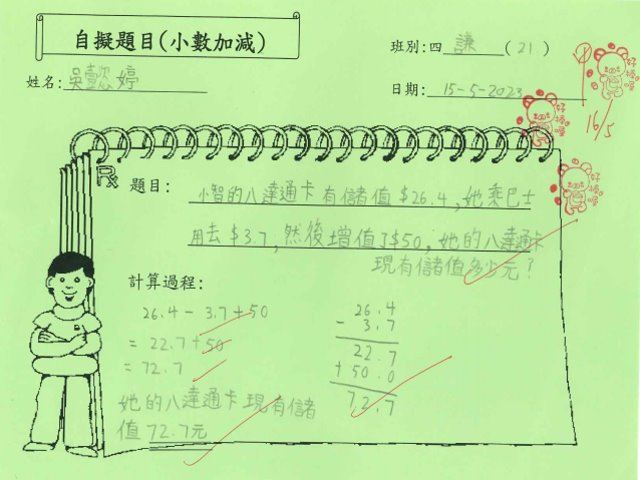 自擬題目(小數加減)
班別:四 謙 (21)
姓名:吳懿婷
日期: 15-5-2023
16/5
題目: 小智的八達通卡有儲值$26.4,她乘巴士
用去$3.7,然後增值了$50,她的八達通卡
現有儲值多少元?
計算過程:
26.4 - 3.7 + 50
= 22.7 + 50
= 72.7
她的八達通卡現有儲
值72.7元
26.4
- 3.7
22.7
+ 50.0
72.7